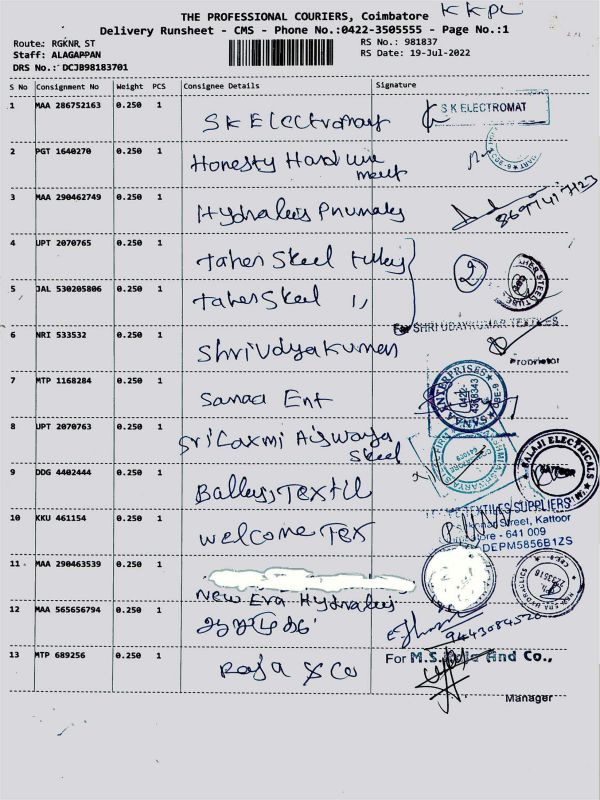 THE PROFESSIONAL COURIERS, Coimbatore KKPL
Delivery Runsheet - CMS - Phone No.:0422-3505555 - Page No.:1
Route: RGKNR, ST
RS No.: 981837
Staff: ALAGAPPAN
RS Date: 19-Jul-2022
DRS No.: DCJB98183701
S No Consignment No Weight PCS Consignee Details Signature
1 MAA 286752163 0.250 1 SK Electromat S K ELECTROMAT
2 PGT 1640270 0.250 1 Honesty Hardware
mart
3 MAA 290462749 0.250 1
4 UPT 2070765 0.250 1 Taher Steel 2
5 JAL 530205806 0.250 1 Taher Steel 11
For SHRI UDAYKUMAR TEXTILES
6 NRI 533532 0.250 1 Shri Udya Kumar
Proprietor
7 MTP 1168284 0.250 1 Sanaa Ent SANAA ENTERPRISES
8 UPT 2070763 0.250 1 Sri Laxmi Aiswarya
Steel
BALAJI ELECTRICALS
9 DDG 4402444 0.250 1
TEXTILES SUPPLIERS
10 KKU 461154 0.250 1 Welcome Tex
Street, Kattoor
641 009
DEPM5856B1ZS
11 MAA 290463539 0.250 1
New Era Hydralics
12 MAA 565656794 0.250 1
9443084520
13 MTP 689256 0.250 1 Raja & Co For M.S. Raja And Co.,
Manager